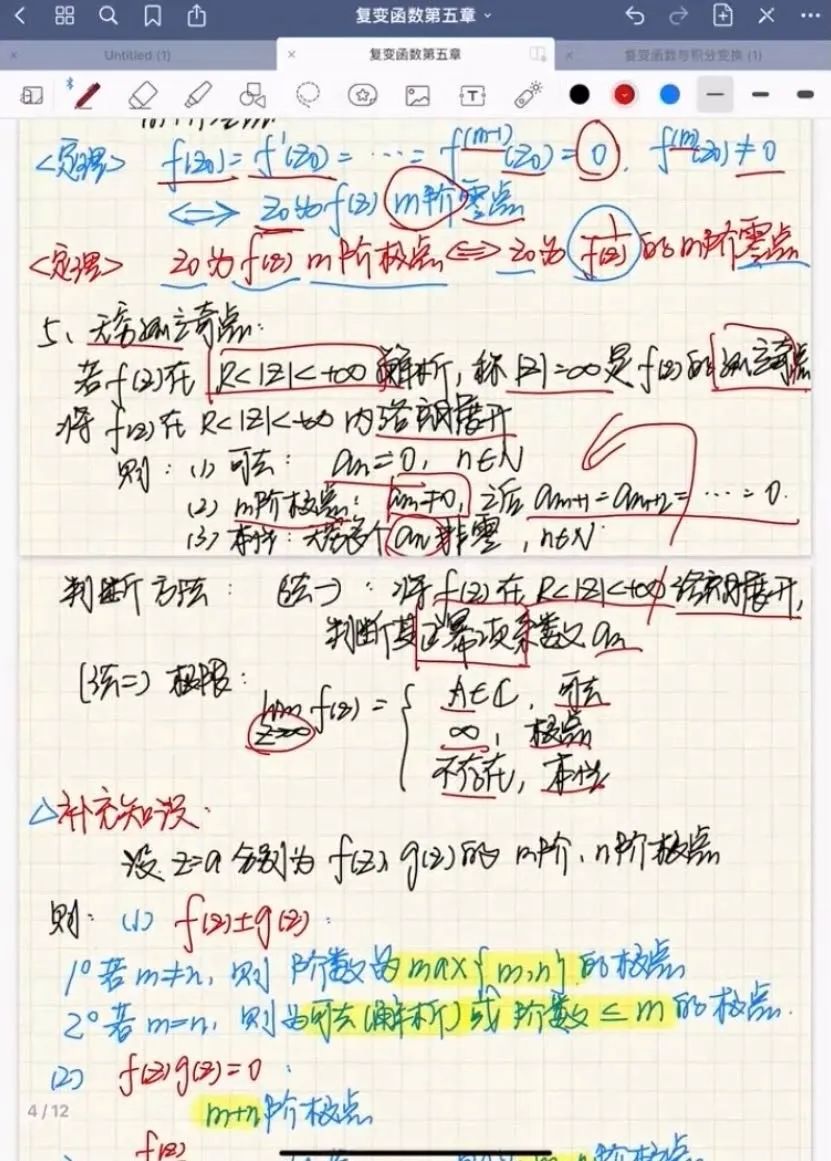 复变函数第五章
Untitled (1)
复变函数第五章
复变函数与积分变换 (1)
<定理> f(z₀) = f'(z₀) = … = f^(m-1)(z₀) = 0, f^(m)(z₀) ≠ 0
⟺ z₀为f(z) m阶零点
<定理> z₀为f(z) m阶极点 ⟺ z₀为 1/f(z) 的m阶零点
5、无穷孤立奇点:
若f(z)在 R<|z|<+∞解析, 称|z|=∞是f(z)的孤立奇点
将f(z)在R<|z|<+∞内洛朗展开
则: (1) 可去: aₙ=0, n∈N
(2) m阶极点: aₘ≠0, 之后 aₘ₊₁=aₘ₊₂=…=0.
(3) 本性: 无穷多个aₙ非零, n∈N
判断方法: (法一): 将f(z)在R<|z|<+∞洛朗展开,
判断其正幂项系数aₙ
(法二) 极限:
lim z→∞ f(z) = { A∈C, 可去
∞, 极点
不存在, 本性
△补充知识:
设z=a分别为f(z)、g(z)的m阶、n阶极点
则: (1) f(z)±g(z):
1° 若m≠n, 则阶数为max{m,n}的极点
2° 若m=n, 则为可去(解析)或阶数≤m的极点.
(2) f(z)g(z)=0:
m+n阶极点
4 / 12
f(z)